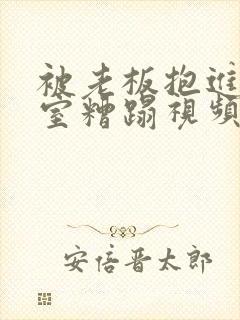 被老板抱進
室糟蹋視頻
安倍晋太郎